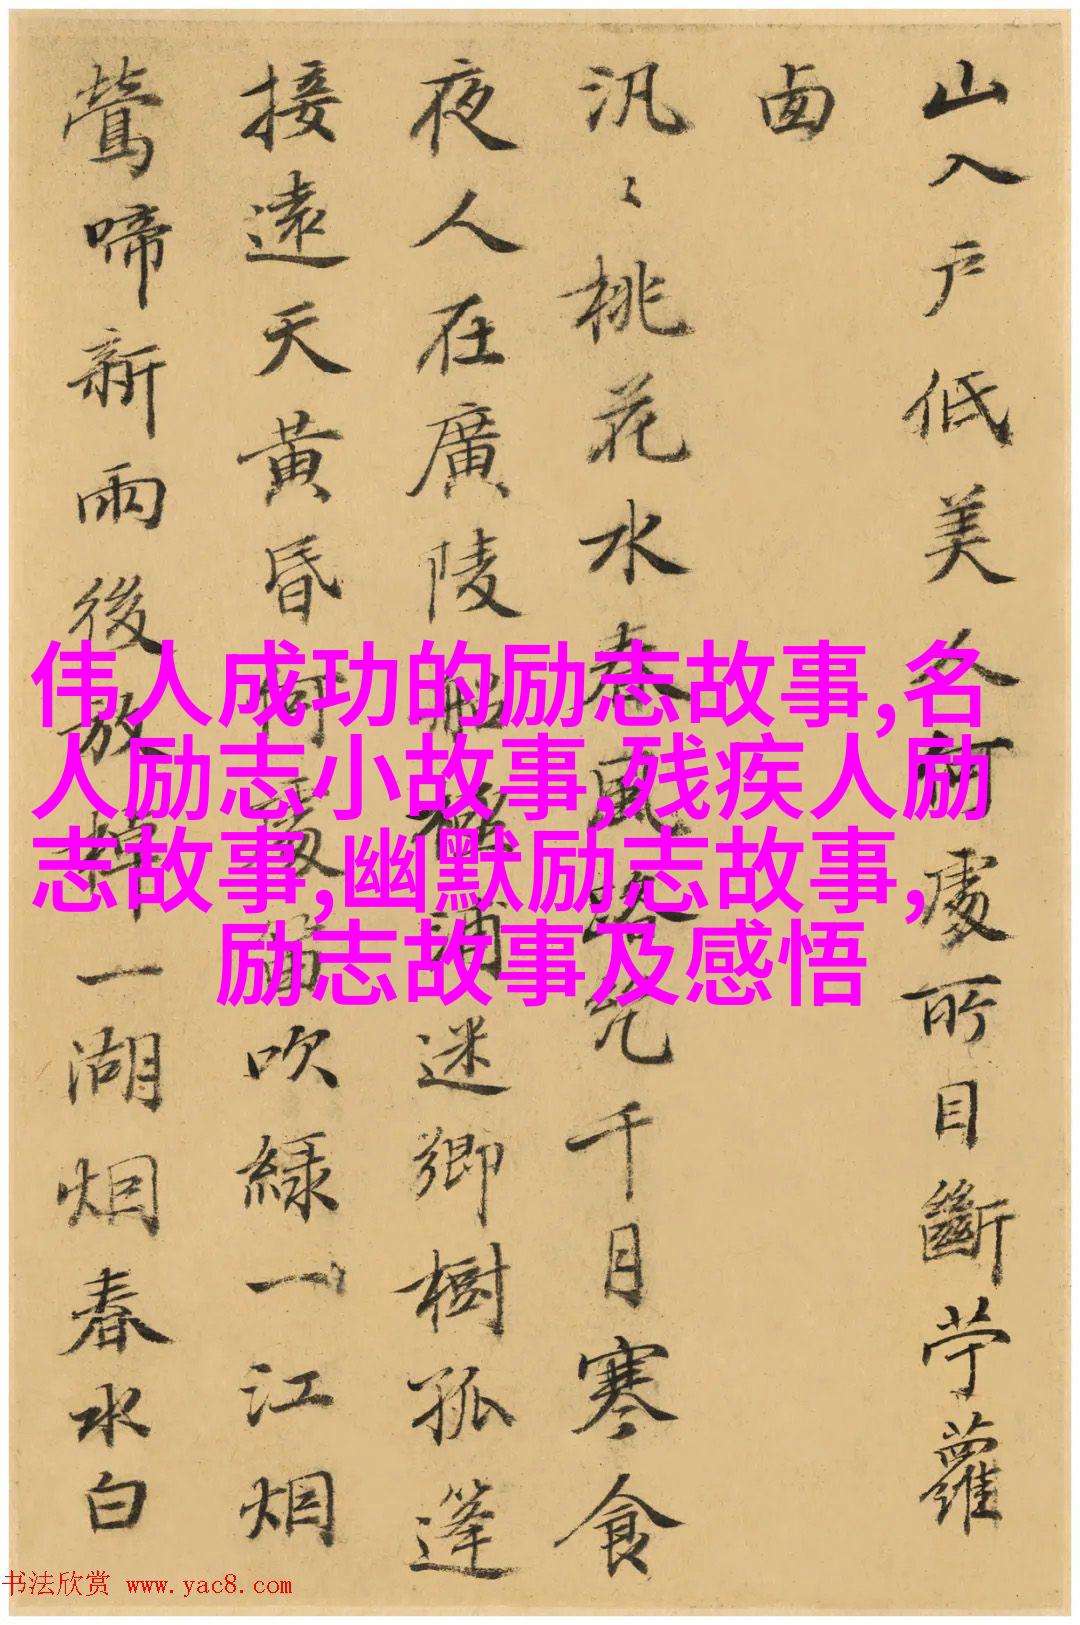 山入户低美人何處所目斷苧蘿
西
汎〻桃花水春風路幾千月寒食
夜人在廣陵船極浦迷鄉樹孤篷
接遠天黃昏何處笛吹綠一江烟
鶯啼新雨後放棹一湖烟春水白
伟人成功的励志故事,名
人励志小故事,残疾人励
志故事,幽默励志故事,
励志故事及感悟
书法欣赏 www.yac8.com